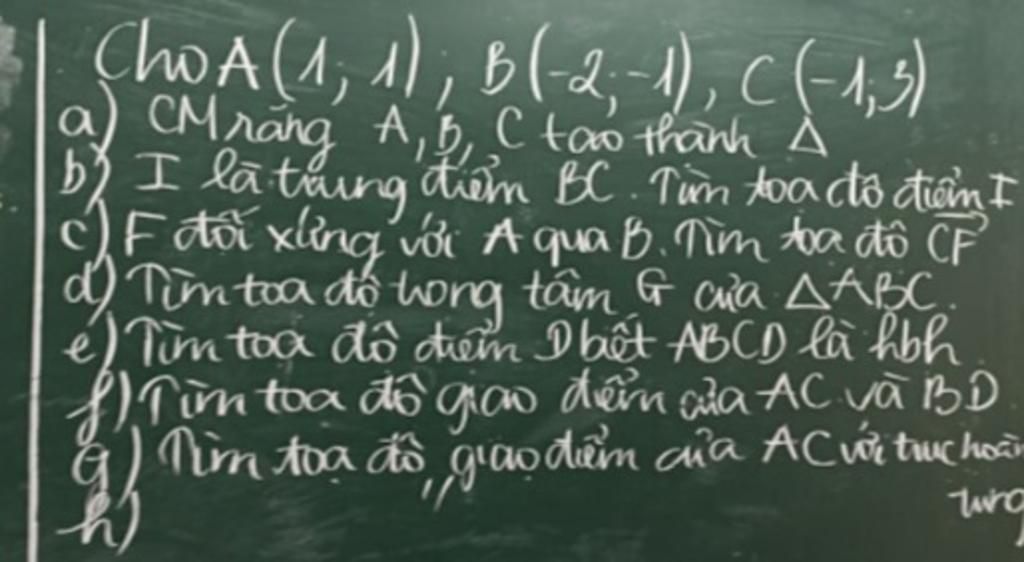 Cho A(1; 1), B(-2; -1), C(-1; 3)
a) CM rằng A, B, C tạo thành Δ
b) I là trung điểm BC. Tìm toạ độ điểm I
c) F đối xứng với A qua B. Tìm toạ độ CF
d) Tìm toạ độ trọng tâm G của ΔABC.
e) Tìm toạ độ điểm D biết ABCD là hbh
f) Tìm toạ độ giao điểm của AC và BD
g) Tìm toạ độ giao điểm của AC với trục hoàn
h) " tung